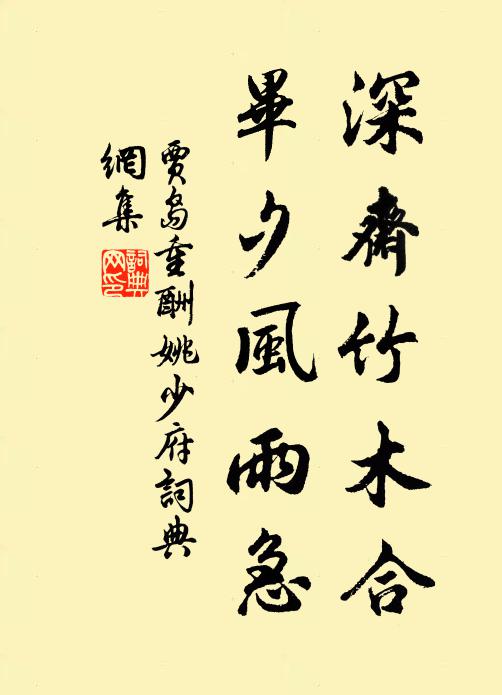 深齋竹木合
畢夕風雨急
賈島重酬姚少府詞典
網集
詞典
网印